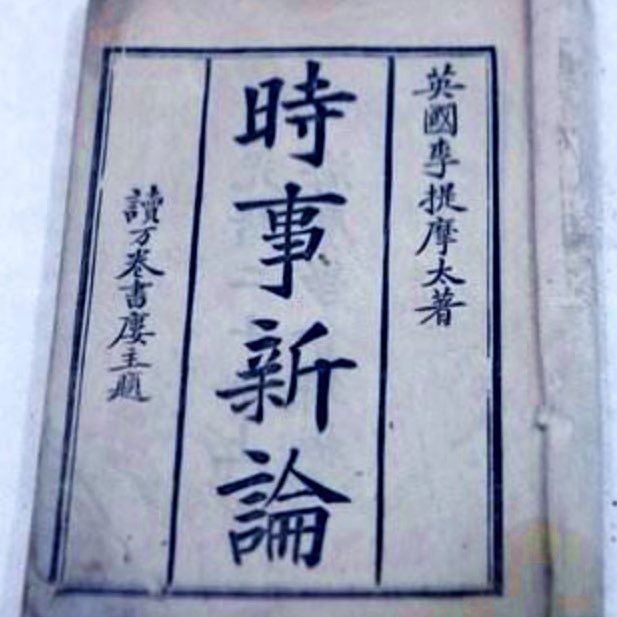 英國李提摩太著
時事新論
讀万卷書廔主題